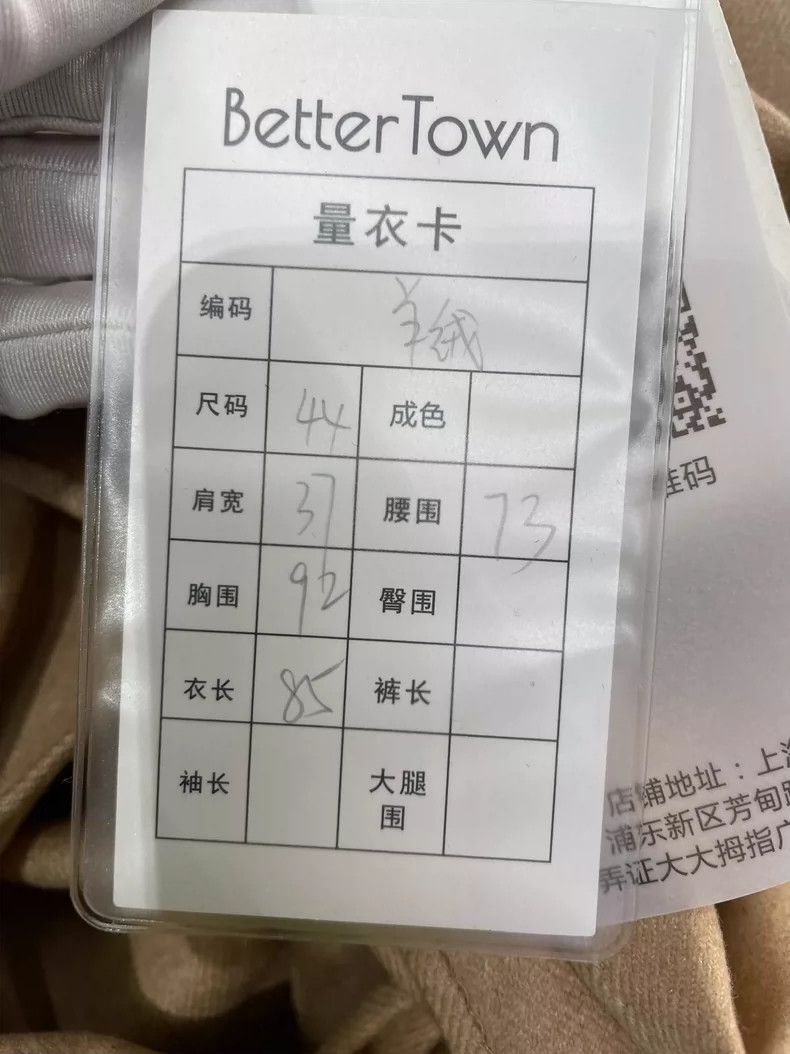 BetterTown
量衣卡
编码 羊绒
尺码 44 成色
肩宽 37 腰围 73
胸围 92 臀围
衣长 85 裤长
袖长 大腿
围
准码
店铺地址：上海
浦东新区芳甸路
弄证大大拇指广